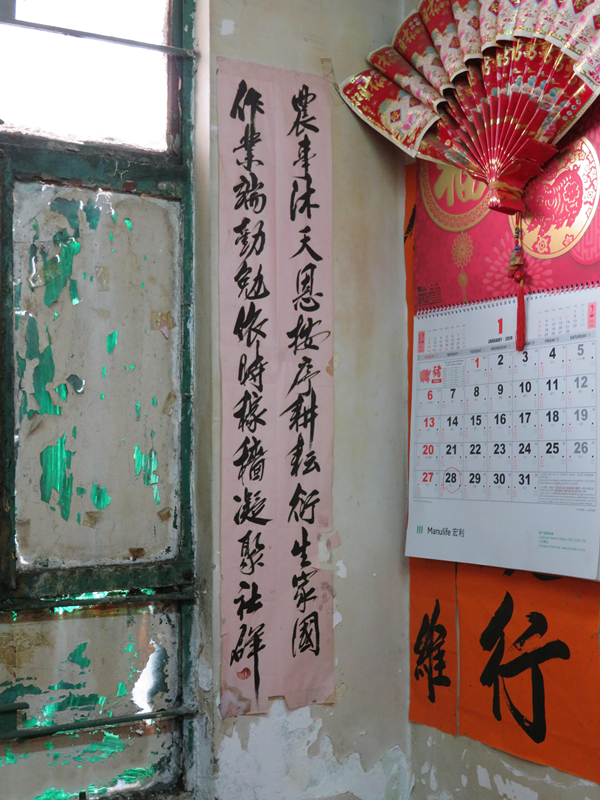 農事沐天恩按序耕耘衍生家國
作業端勤勉依時稼穡凝聚社群
福
1
JANUARY 2019
SATURDAY
1 2 3 4 5
6 7 8 9 10 11 12
13 14 15 16 17 18 19
20 21 22 23 24 25 26
27 28 29 30 31
Manulife 宏利
行
維